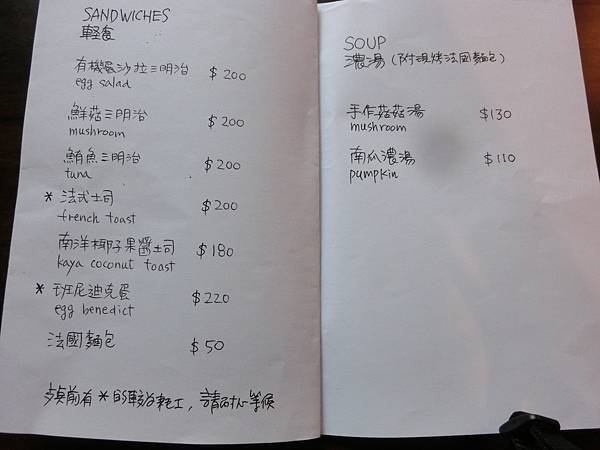 SANDWICHES
輕食
有機蛋沙拉三明治 $200
egg salad
鮮菇三明治 $200
mushroom
鮪魚三明治 $200
tuna
* 法式土司 $200
french toast
南洋椰子果醬土司 $180
kaya coconut toast
* 班尼迪克蛋 $220
egg benedict
法國麵包 $50
前有 * 的較, 請耐心等候
SOUP
濃湯 (附現烤法國麵包)
手作菇菇湯 $130
mushroom
南瓜濃湯 $110
pumpkin